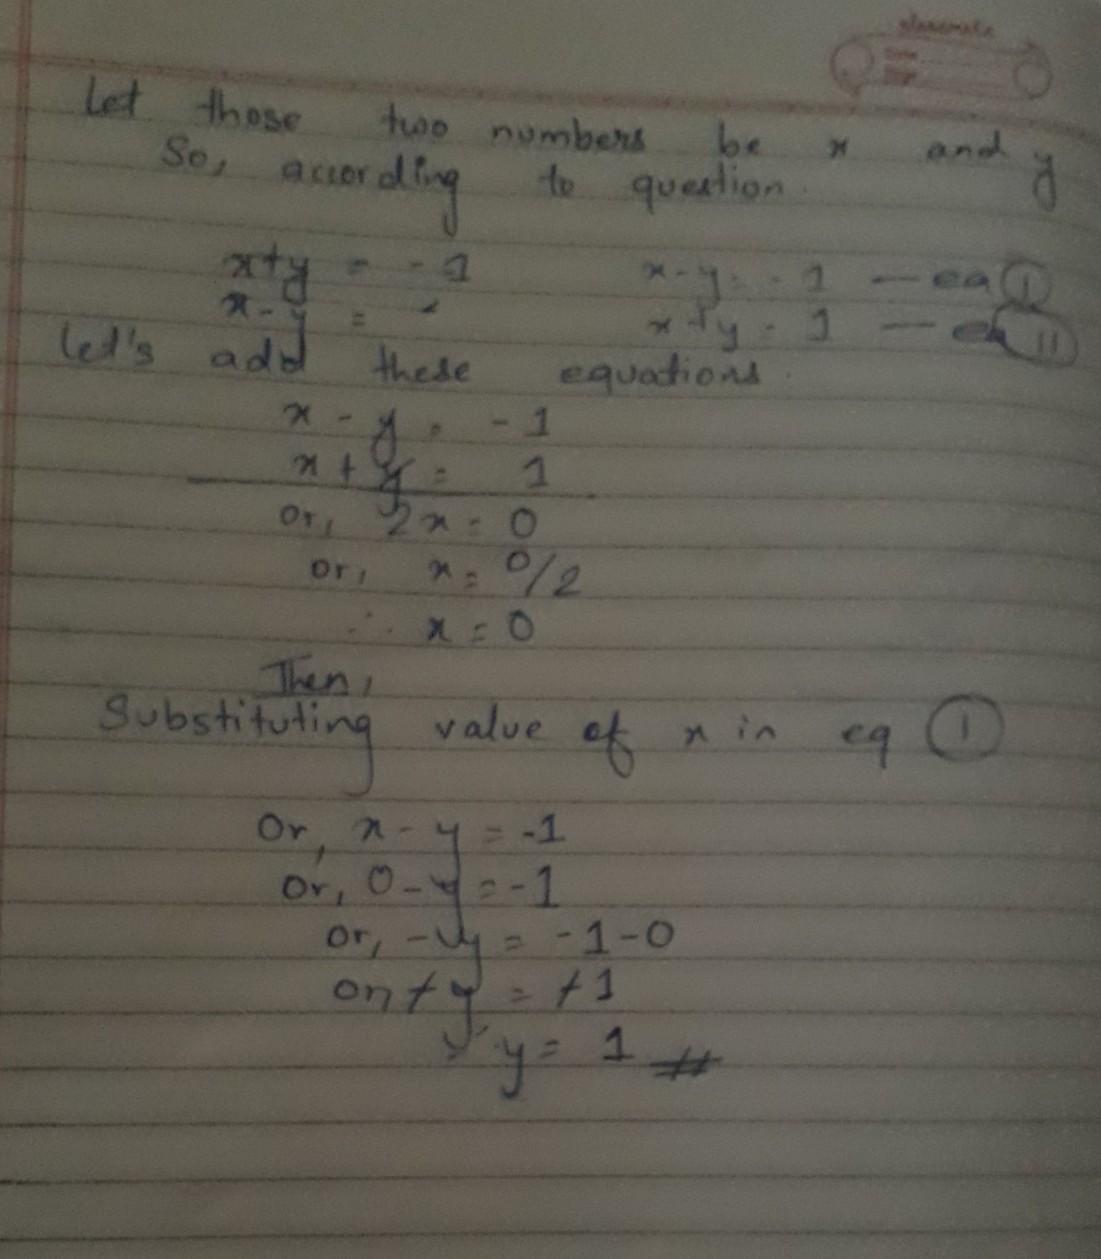 classmate
Date
Page
Let those two numbers be x and y
So, according to question.
x+y = -1 x-y = -1 — eq (I)
x-y = x+y = 1 — eq (II)
Let's add these equations.
x - y = -1
x + y = 1
or, 2x = 0
or, x = 0/2
∴ x = 0
Then,
Substituting value of x in eq (I)
Or, x - y = -1
or, 0 - y = -1
or, -y = -1-0
or, +y = +1
∴ y = 1 #